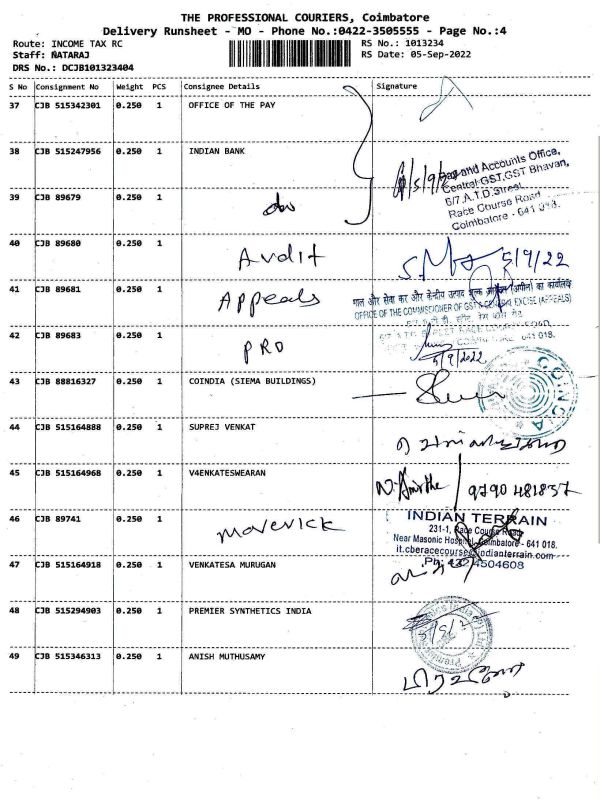 THE PROFESSIONAL COURIERS, Coimbatore
Delivery Runsheet - MO - Phone No.:0422-3505555 - Page No.:4
Route: INCOME TAX RC
RS No.: 1013234
Staff: NATARAJ
RS Date: 05-Sep-2022
DRS No.: DCJB101323404
S No Consignment No Weight PCS Consignee Details Signature
37 CJB 515342301 0.250 1 OFFICE OF THE PAY
38 CJB 515247956 0.250 1 INDIAN BANK
Pay and Accounts Office,
Central GST, GST Bhavan,
6/7, A.T.D. Street,
Race Course Road
Coimbatore - 641 018.
39 CJB 89679 0.250 1
40 CJB 89680 0.250 1 Audit 5/9/22
41 CJB 89681 0.250 1 Appeals
माल और सेवा कर और केंद्रीय उत्पाद शुल्क आयुक्त (अपील) का कार्यालय
OFFICE OF THE COMMISSIONER OF GST & CENTRAL EXCISE (APPEALS)
42 CJB 89683 0.250 1 PRO
641 018.
5/9/2022
43 CJB 88816327 0.250 1 COINDIA (SIEMA BUILDINGS)
COINDIA
44 CJB 515164888 0.250 1 SUPREJ VENKAT
45 CJB 515164968 0.250 1 V4ENKATESWEARAN
9790 481837
46 CJB 89741 0.250 1 maverick
INDIAN TERRAIN
231-1, Race Course Road
Near Masonic Hospital, Coimbatore - 641 018.
it.cberacecourse@indianterrain.com
Ph: 422 4504608
47 CJB 515164918 0.250 1 VENKATESA MURUGAN
48 CJB 515294903 0.250 1 PREMIER SYNTHETICS INDIA
49 CJB 515346313 0.250 1 ANISH MUTHUSAMY